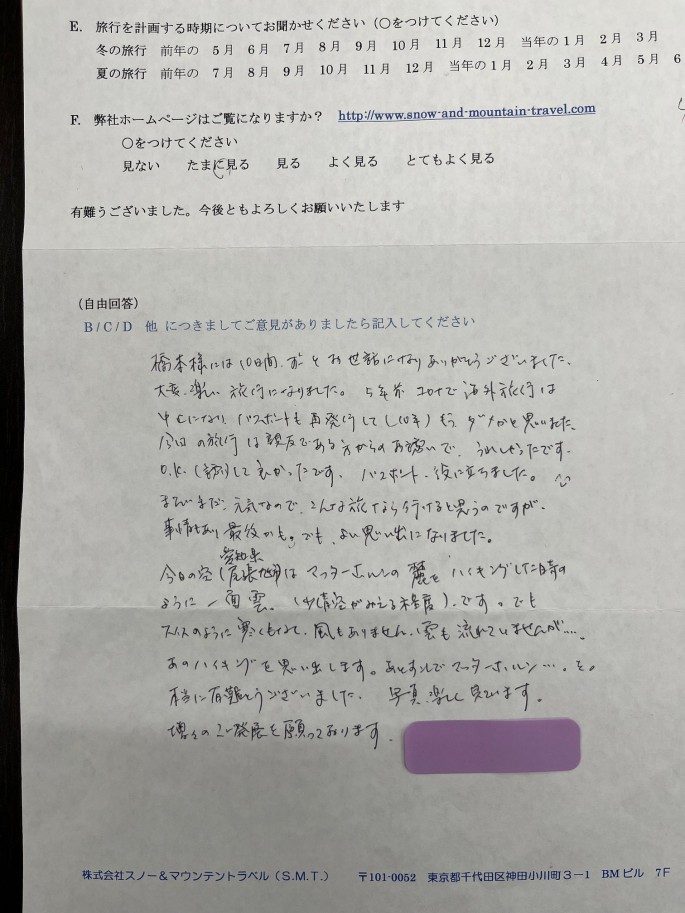 E. 旅行を計画する時期についてお聞かせください（○をつけてください）
冬の旅行 前年の 5月 6月 7月 8月 9月 10月 11月 12月 当年の1月 2月 3月
夏の旅行 前年の 7月 8月 9月 10月 11月 12月 当年の1月 2月 3月 4月 5月 6
F. 弊社ホームページはご覧になりますか？ http://www.snow-and-mountain-travel.com
○をつけてください
見ない たまに見る 見る よく見る とてもよく見る
有難うございました。今後ともよろしくお願いいたします
（自由回答）
B/C/D 他 につきましてご意見がありましたら記入してください
橋本様には10日間、ずっとお世話になりありがとうございました。
大変、楽しい旅行になりました。5年前コロナで海外旅行は
中止になり、パスポートも再発行して（10年）もう、ダメかと思いました。
今回の旅行は親友である方からのお誘いで、うれしかったです。
O.K.して良かったです。パスポート、役に立ちました。
まだまだ、元気なので、こんな旅なら行けると思うのですが、
事情もあり最後かも。でも、よい思い出になりました。
愛知県
今日の空（尾張地方）は マッターホルンの麓をハイキングした時の
ように一面雲。（少し青空がみえる程度）です。でも
スイスのように寒くもなく、風もありません、雲も流れていませんが…、
あのハイキングを思い出します。あと少しでマッターホルン…。と。
本当に有難とうございました。写真、楽しく見ています。
増々のご発展を願っております。
株式会社スノー＆マウンテントラベル（S.M.T.） 〒101-0052 東京都千代田区神田小川町3－1 BMビル 7F